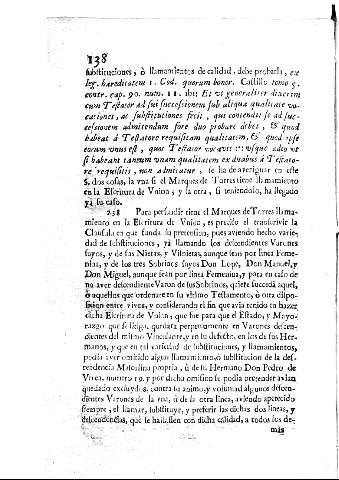 138
substituciones, ò llamamientos de calidad, debe probarla, ex
leg. hæreditatem 1. Cod. quorum bonor. Castillo tomo 5.
contr. cap. 90. num. 11. ibi: Et ut generaliter dixerim
cum Testator ad sui successionem sub aliqua qualitate vo-
cationes, ac substitutiones fecit, qui contendit se ad suc-
cessionem admittendum fore duo probare debet, & quod
habeat à Testatore requisitam qualitatem, & quod ipse
eorum unus est, quos Testator vocavit: usque adeo ut
si habeant tantum unam qualitatem ex duabus à Testato-
re requisitis, non admitatur, se ha de averiguar en este
§. dos cosas, la una si el Marques de Torres tiene llamamiento
en la Escritura de Union, y la otra, si teniendolo, ha llegado
yà su caso.
238 Para persuadir tiene el Marques de Torres llama-
miento en la Escritura de Union, es preciso el transferivir la
Clausula en que funda su pretension, pues aviendo hecho varie-
dad de substituciones, yà llamando los descendientes Varones
suyos, y de sus Nietas, y Visnietas, aunque sean por linea Feme-
nina, y de los tres Sobrinos suyos Don Lope, Don Manuel, y
Don Miguel, aunque sean por linea Femenina, y para en caso de
no aver descendiente Varon de sus Sobrinos, quiere succeda aquel,
ò aquellos que ordenare en su ultimo Testamento, ò otra dispo-
sicion entre vivos, y considerando el fin que avia tenido en hazer
dicha Escritura de Union, que fue para que el Estado, y Mayo-
razgo que se sigue, quedàra perpetuamente en Varones descen-
dientes del mismo Vinculante, y en su defecto, en los de sus Her-
manos, y que en tal variedad de substituciones, y llamamientos,
podia aver omitido algun llamamiento, ò substitucion de la des-
cendencia Masculina propria, ò de su Hermano Don Pedro de
Urrea, numero 19. y por dicha omission se podia pretender avian
quedado excluydos, contra su animo, y voluntad algunos descen-
dientes Varones de la una, ù de la otra linea, aviendo apetecido
siempre, el llamar, substituyr, y preferir las dichas dos lineas, y
descendencias, que se hallassen con dicha calidad, a todos los de-
màs